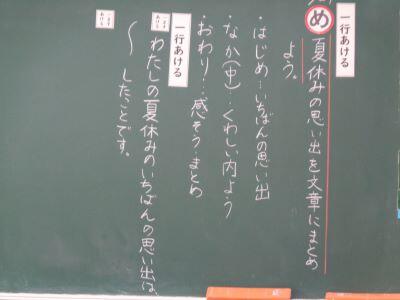 一行あける
め 夏休みの思い出を文章にまとめ
よう。
・はじめ…いちばんの思い出
・なか(中)…くわしい内よう
・おわり…感そう・まとめ
一行あける
一ますあける わたしの夏休みのいちばんの思い出は、
一ますあける 〜したことです。